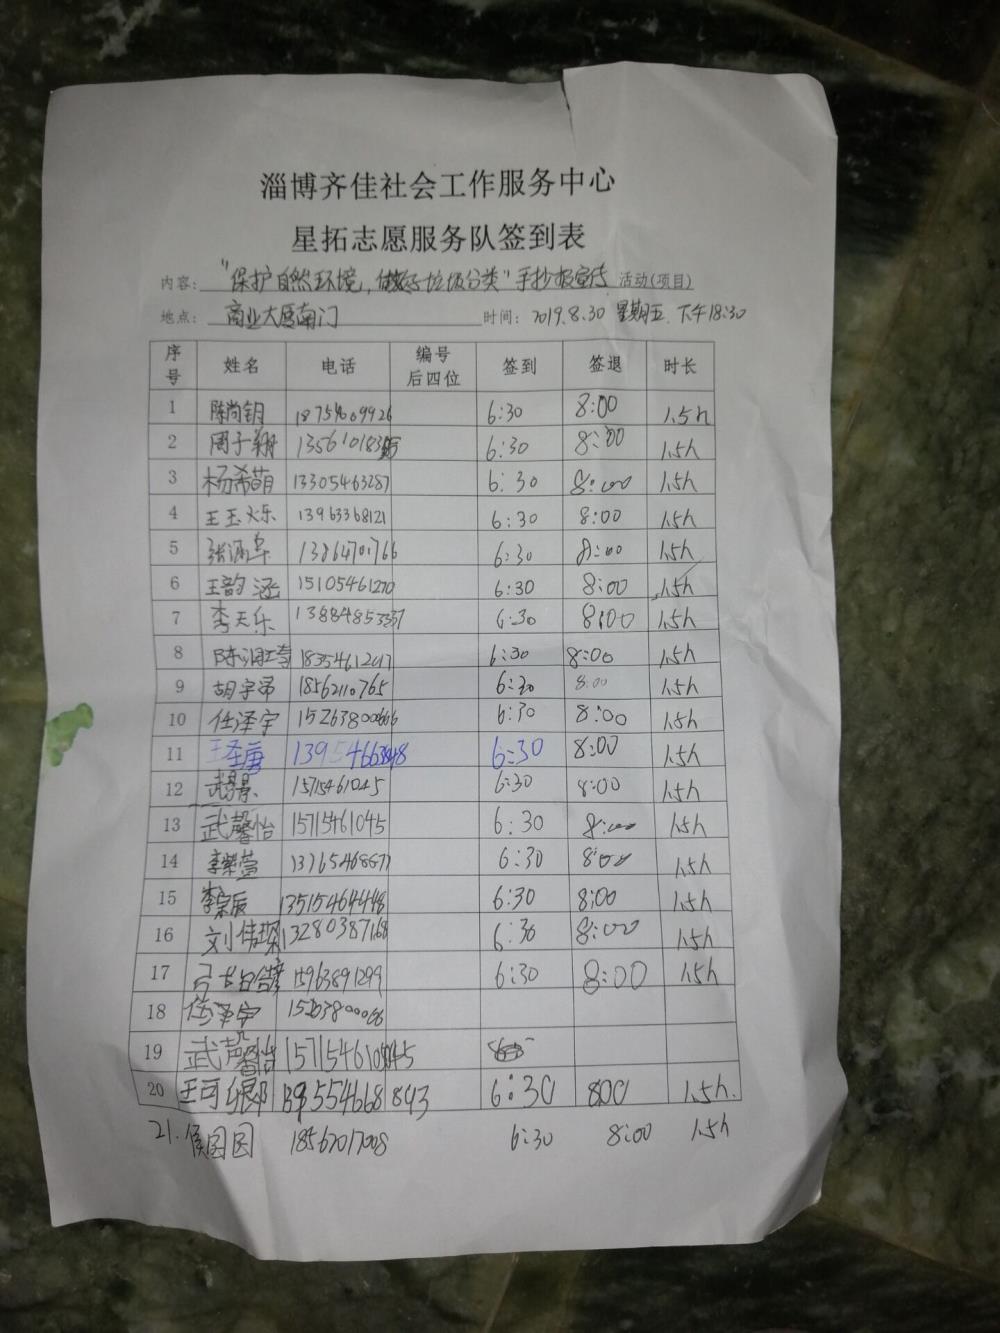 淄博齐佳社会工作服务中心
星拓志愿服务队签到表
内容: "保护自然环境,做好垃圾分类"手抄报宣传 活动(项目)
地点: 商业大厦南门 时间: 2019.8.30 星期五.下午18:30
序号 姓名 电话 编号后四位 签到 签退 时长
1 陈尚钥 18754609926 6:30 8:00 1.5h
2 周子翔 6:30 8:00 1.5h
3 杨希萌 13305463287 6:30 8:00 1.5h
4 王玉烁 13963368121 6:30 8:00 1.5h
5 13864701766 6:30 8:00 1.5h
6 王韵涵 15105461270 6:30 8:00 1.5h
7 李天乐 6:30 8:00 1.5h
8 18354612017 6:30 8:00 1.5h
9 胡宇帛 18562110765 6:30 8:00 1.5h
10 任泽宇 15263800666 6:30 8:00 1.5h
11 王圣唐 6:30 8:00 1.5h
12 15715461045 6:30 8:00 1.5h
13 武馨怡 15715461045 6:30 8:00 1.5h
14 李紫萱 6:30 8:00 1.5h
15 李宗辰 13515464448 6:30 8:00 1.5h
16 刘伟琛 13280387168 6:30 8:00 1.5h
17 15963891299 6:30 8:00 1.5h
18 任泽宇
19 武馨怡
20 王可 6:30 800 1.5h.
21. 侯围园 18562017008 6:30 8:00 1.5h